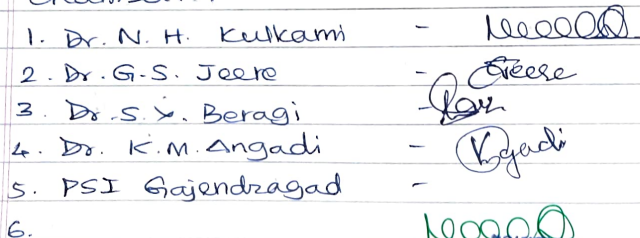 1. Dr. N. H. Kulkarni -
2. Dr. G.S. Jeere -
3. Dr. S. Y. Beragi -
4. Dr. K.M. Angadi -
5. PSI Gajendragad -
6.